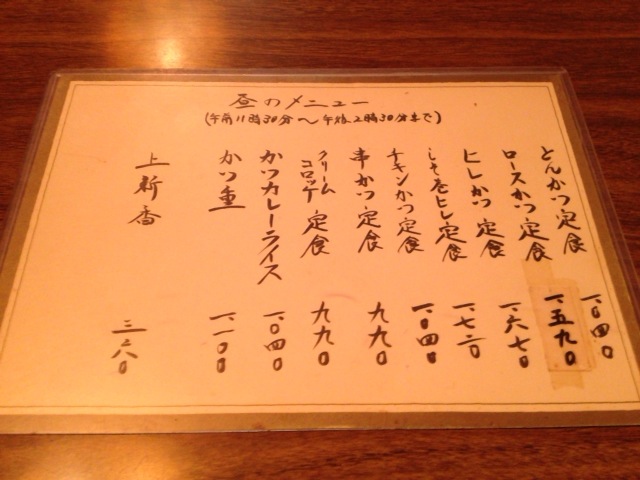 昼のメニュー
(午前11時30分〜午後2時30分まで)
とんかつ定食 一、〇四〇
ロースかつ定食 一、五九〇
ヒレかつ定食 一、六七〇
しそ巻ヒレ定食 一、七二〇
チキンかつ定食 一、〇四〇
串かつ定食 九九〇
クリームコロッケ定食 九九〇
かつカレーライス 一、〇四〇
かつ重 一、一〇〇
上新香